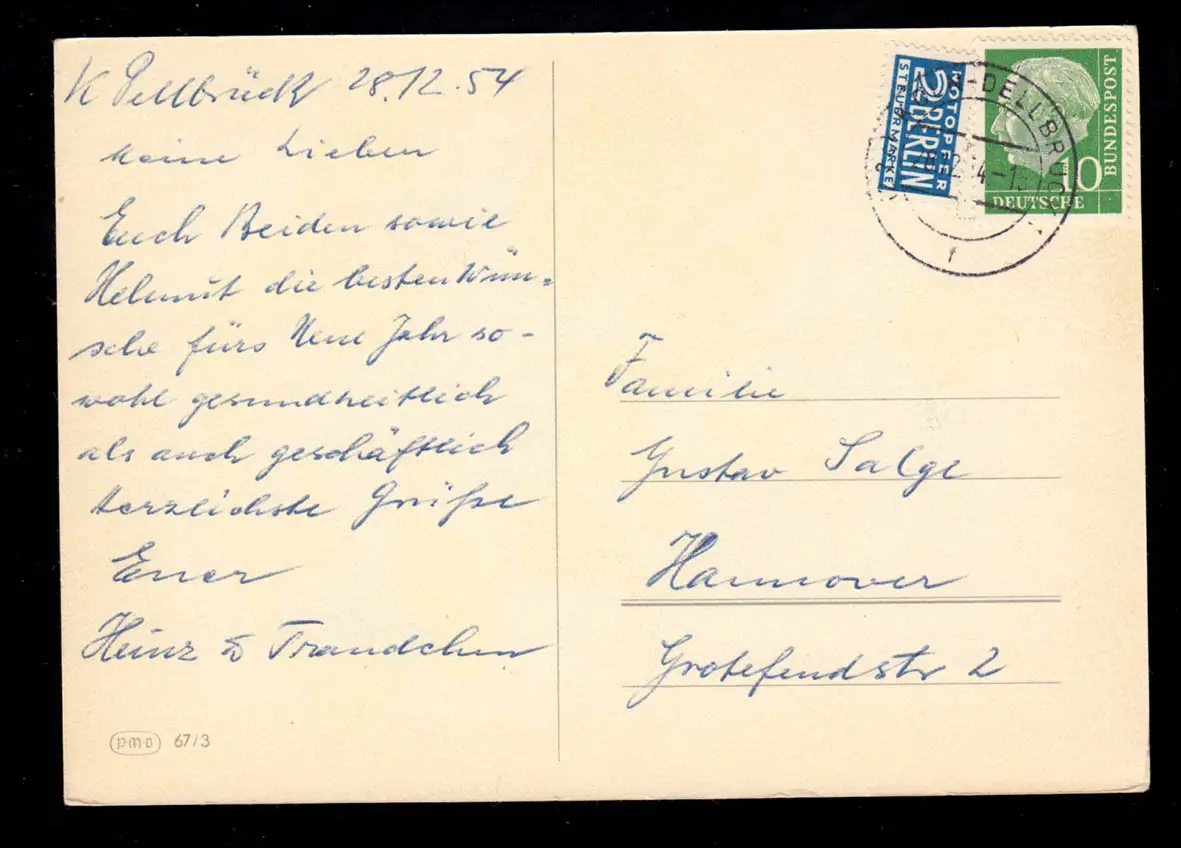 K Dellbrück 28.12.54
Meine Lieben
Euch Beiden sowie
Helmut die besten Wün-
sche fürs Neue Jahr so-
wohl gesundheitlich
als auch geschäftlich
Herzlichste Grüße
Euer
Heinz & Traudchen
pmo 67/3
NOTOPFER
2 BERLIN
STEUERMARKE
-DELLBRÜCK
f
10
DEUTSCHE
BUNDESPOST
Familie
Gustav Salge
Hannover
Grotefendstr 2